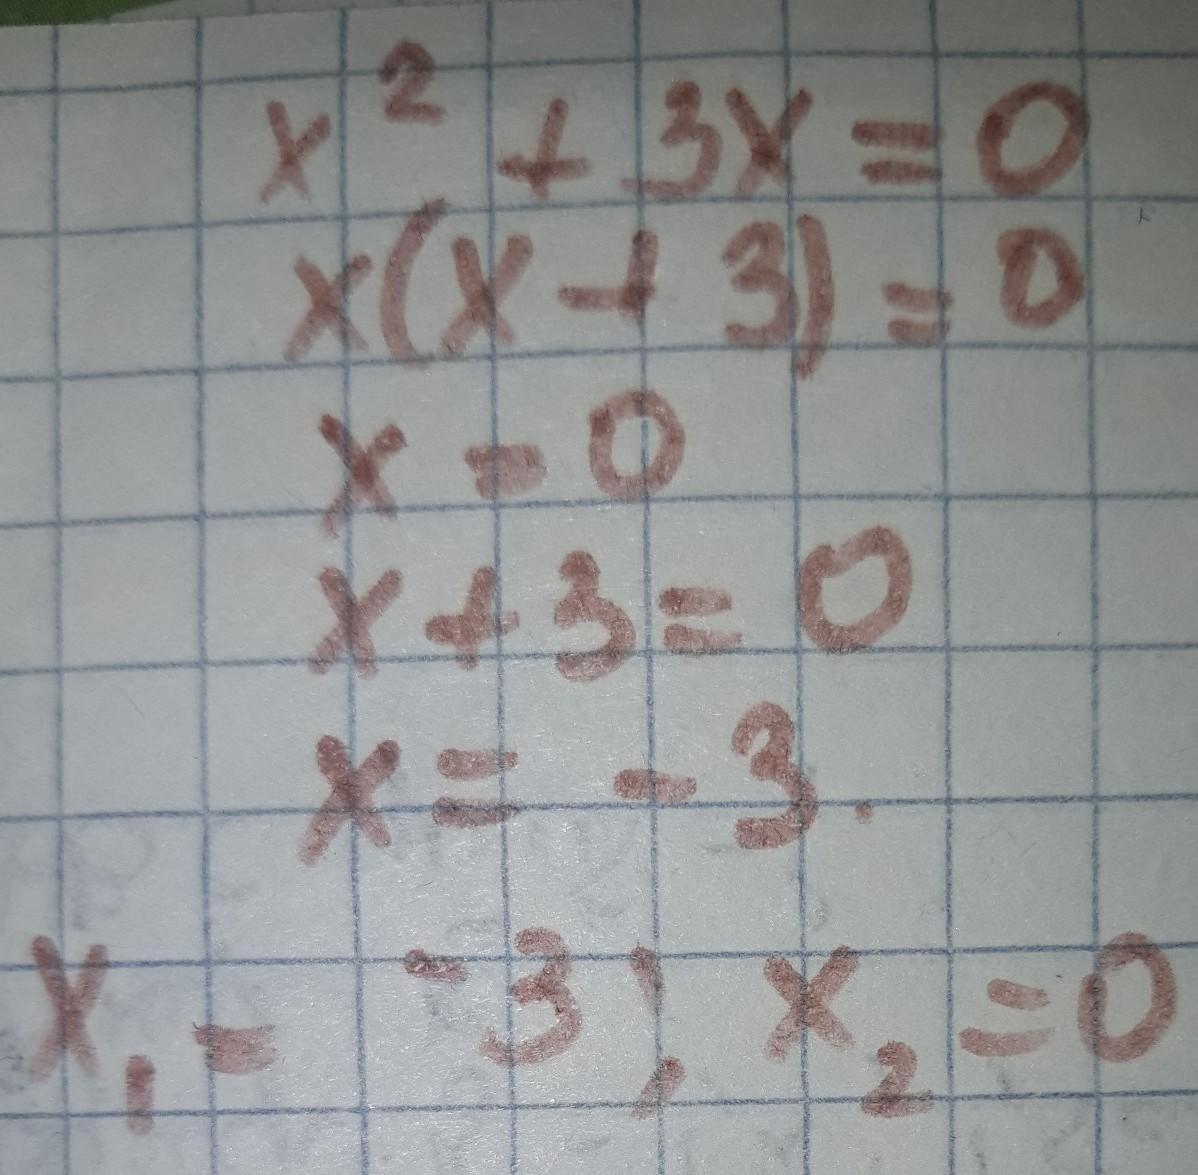 x² + 3x = 0
x(x + 3) = 0
x = 0
x + 3 = 0
x = - 3.
x₁ = -3; x₂ = 0